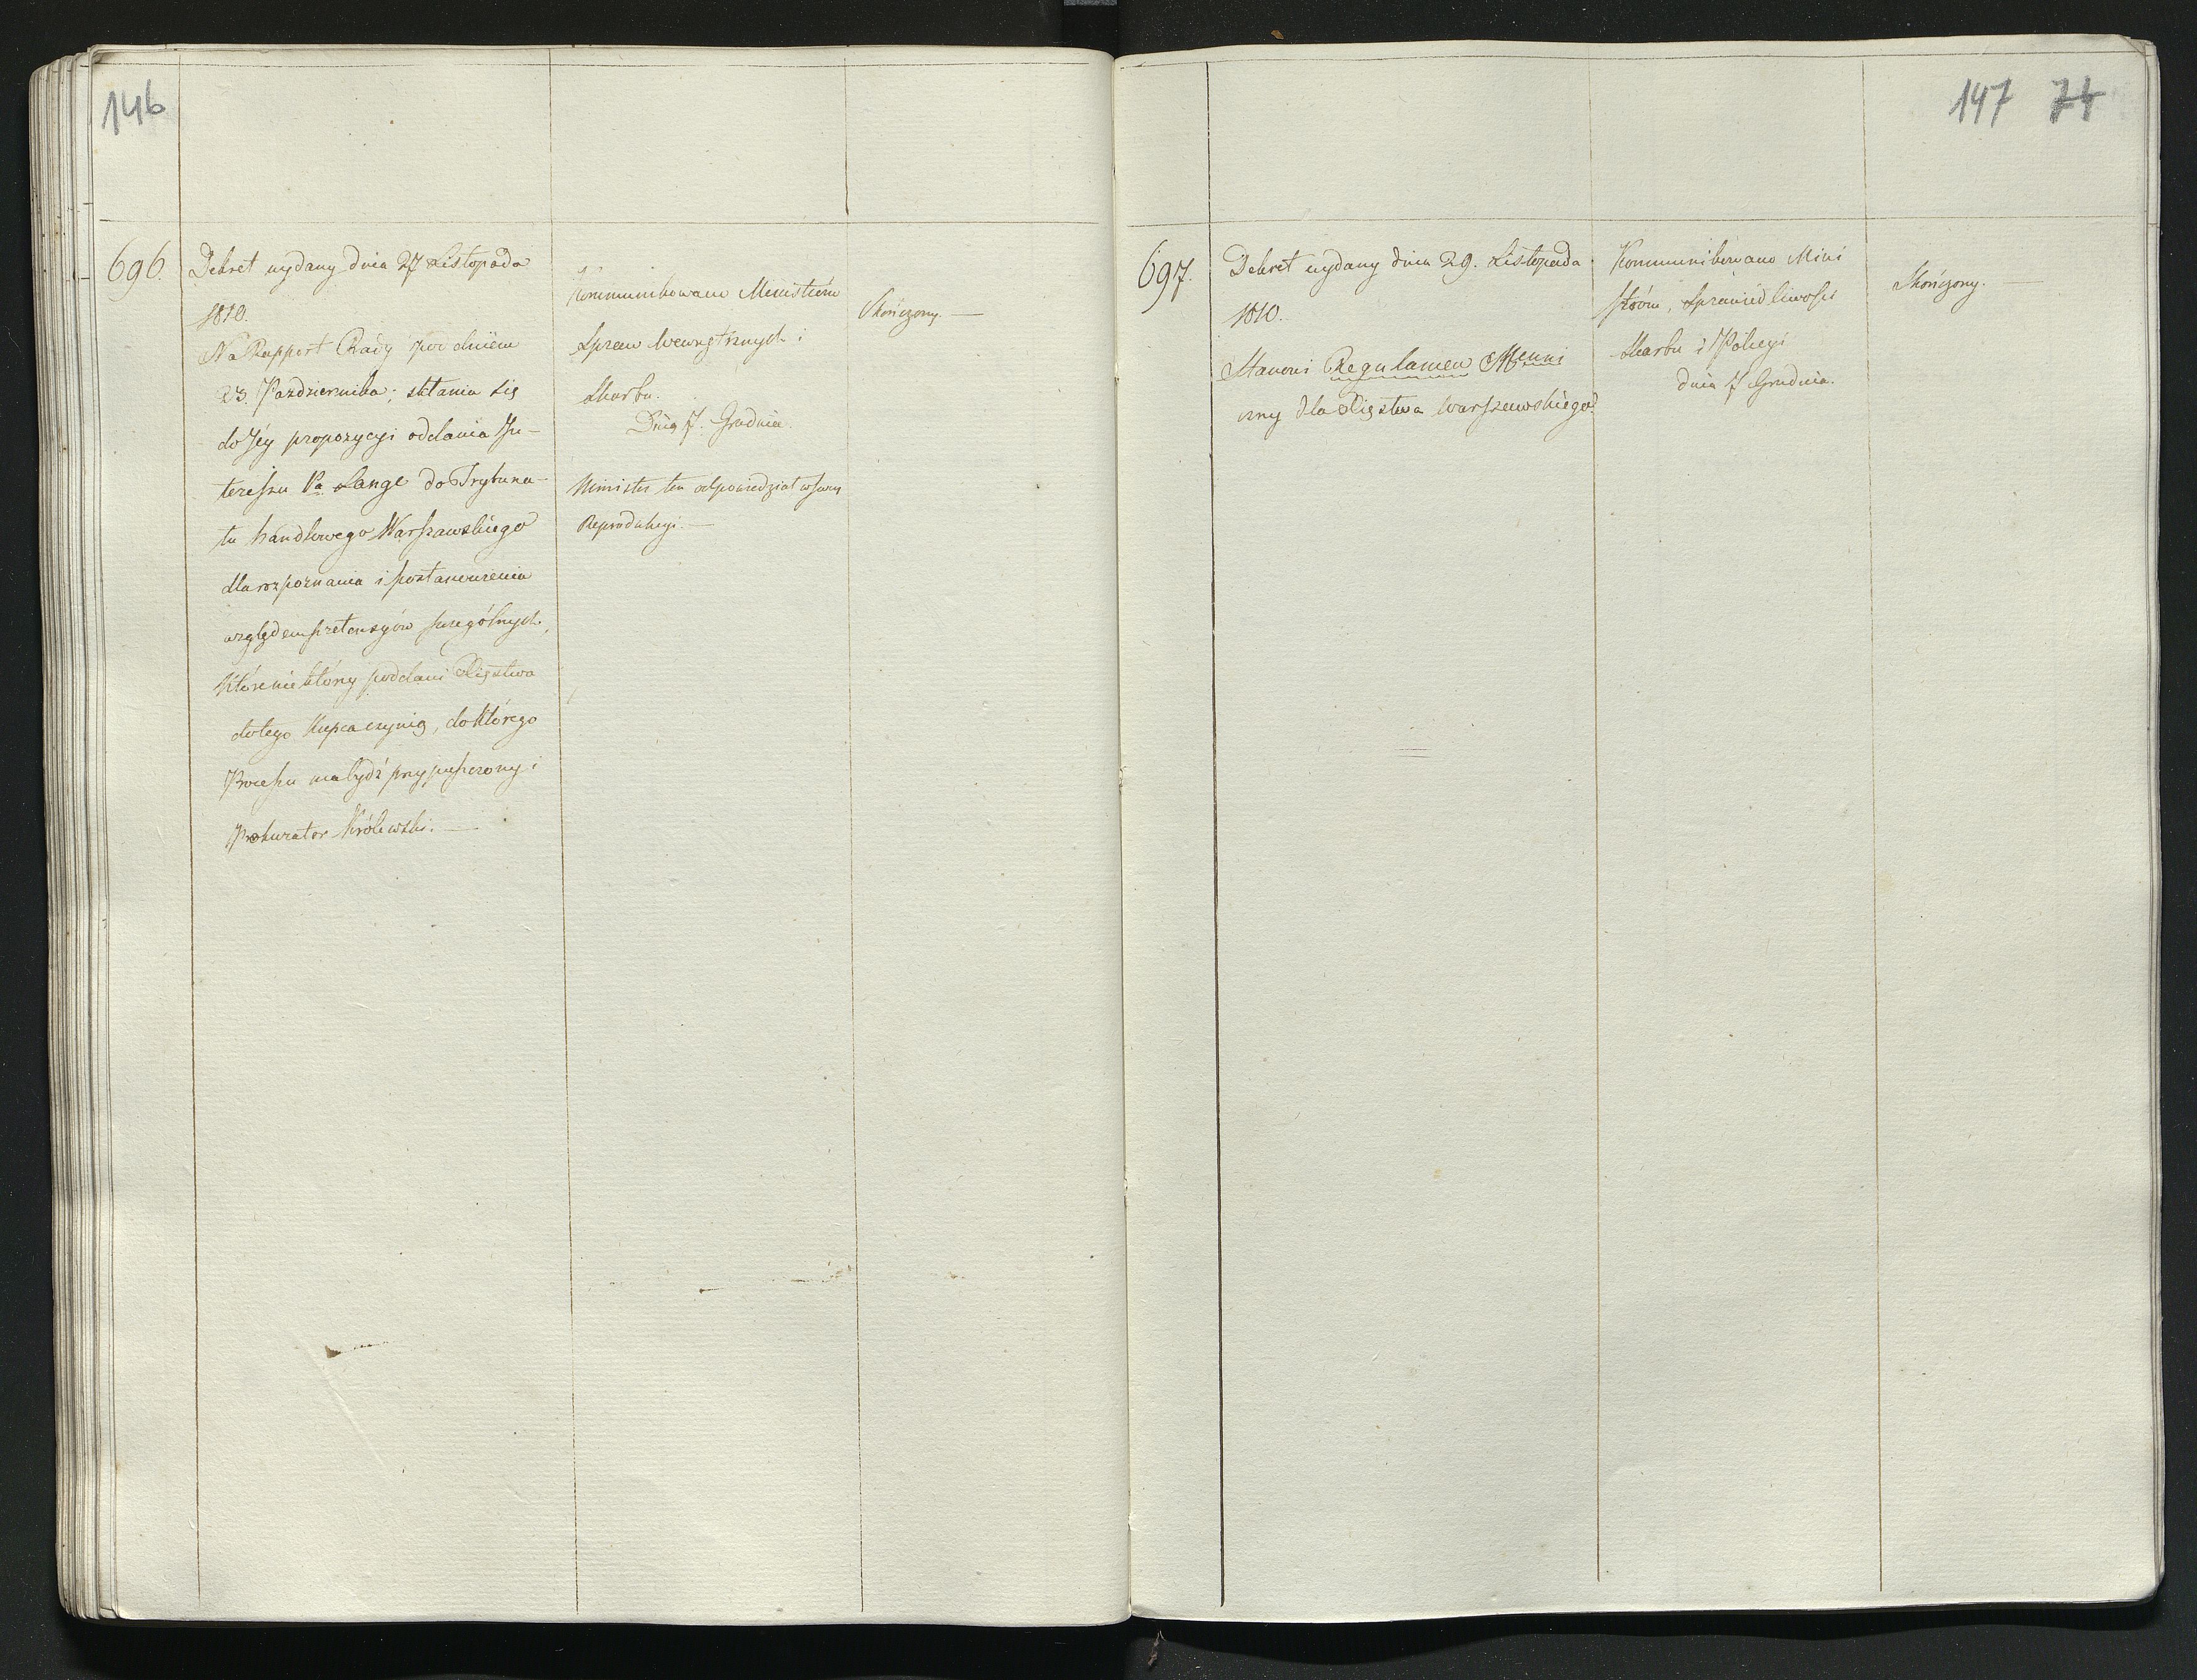 146
696.
Dekret wydany dnia 27 Listopada
1810.
Na Rapport Rady pod dniem
23. Pazdziernika; skłania się
do Jéy propozycyi oddania In-
teressu Pa Lange do Trybuna-
łu handlowego Warszawskiego
dla rozpoznania i postanowienia
względem pretensyów szczególnych,
które niektóry poddani Xięstwa
do tego Kupca czynią, do którego
Processu ma bydź przypuszczony i
Prokurator Królewski. —
Kommunikowano Ministróm
Spraw Wewnętrznych i
Skarbu.
Dnia 7. Grudnia.
Minister ten odpowiedział w swey
Reprodukcyi. —
Skończony. —
147 74
697.
Dekret wydany dnia 29. Listopada
1810.
Stanowi Regulamen Menni
czny dla Xięstwa Warszawskiego.
Kommunikowano Mini
stróm, Sprawiedliwości
Skarbu i Policyi
dnia 7 Grudnia.
Skończony. —